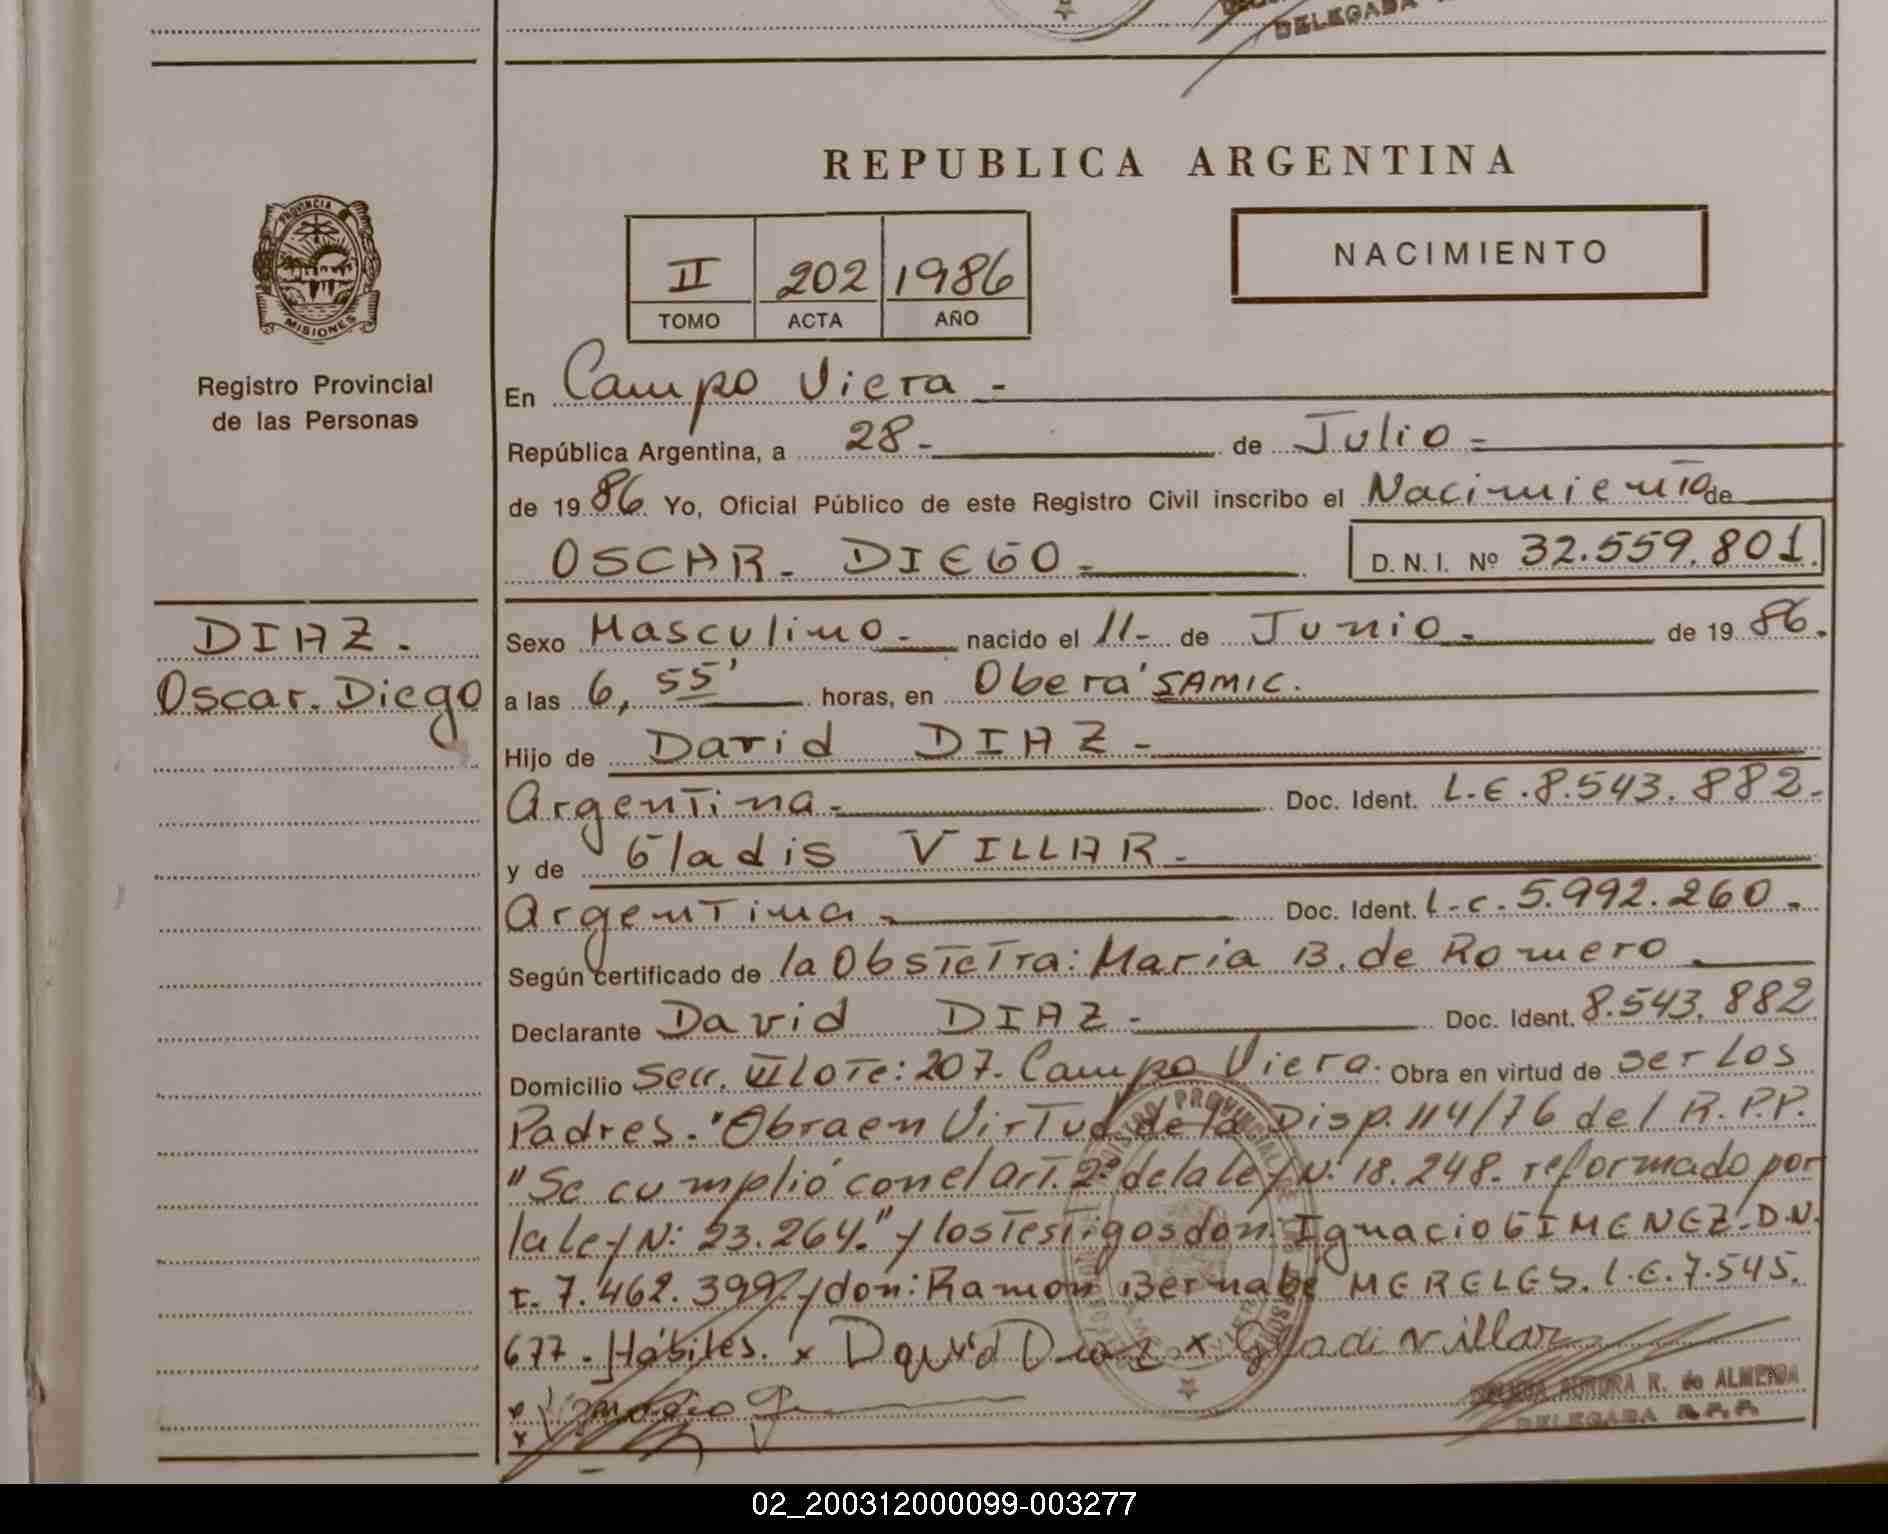 DELEGADA
REPUBLICA ARGENTINA
PROVINCIA
MISIONES
Registro Provincial
de las Personas
II 202 1986
TOMO ACTA AÑO
NACIMIENTO
En Campo Viera -
República Argentina, a 28 - de Julio -
de 1986 Yo, Oficial Público de este Registro Civil inscribo el Nacimiento de
OSCAR - DIEGO - D. N. I. Nº 32.559.801.
DIAZ.
Oscar. Diego
Sexo Masculino - nacido el 11 - de Junio - de 19 86.
a las 6, 55' horas, en Oberá SAMIC.
Hijo de David DIAZ -
Argentina - Doc. Ident. L.E. 8.543.882-
y de Gladis VILLAR -
Argentina - Doc. Ident. L.C. 5.992.260 -
Según certificado de la Obstetra: Maria B. de Romero
Declarante David DIAZ - Doc. Ident. 8.543.882
Domicilio Secc. VI Lote: 207. Campo Viera. Obra en virtud de ser los
Padres. "Obra en Virtud de la Disp. 114/76 del R.P.P.
"Se cumplió con el art. 2º de la ley N: 18.248. reformado por
la ley N: 23.264." y los testigos don Ignacio GIMENEZ. D.N.
I. 7.462.399. y don: Ramon Bernabe MERELES. L.E. 7.545.
677. Hábiles. x David Diaz x Gladi Villar
AURORA R. de ALMEIDA
DELEGADA R.P.P.
02_200312000099-003277